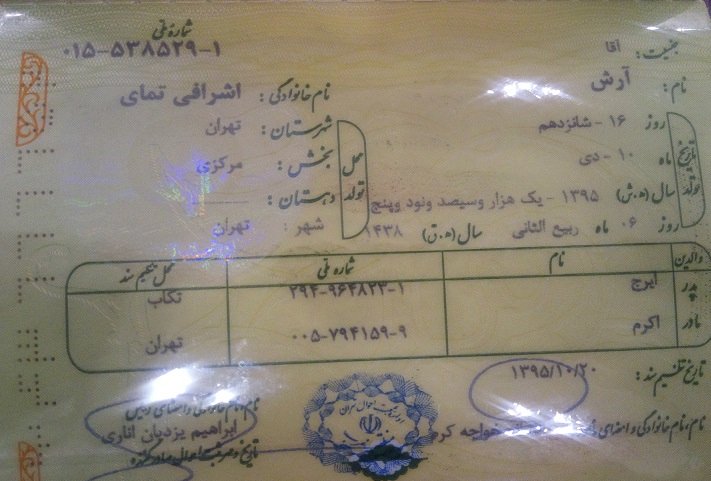 جنسیت: آقا
شماره ملی
۰۱۵-۵۳۸۵۲۹-۱
نام: آرش
نام خانوادگی: اشرافی تمای
تاریخ تولد
روز ۱۶ - شانزدهم
ماه ۱۰ - دی
سال (ه.ش) ۱۳۹۵ - یک هزار وسیصد ونود وپنج
روز ۰۶ ماه ربیع الثانی سال (ه.ق) ۱۴۳۸
محل تولد
شهرستان: تهران
بخش: مرکزی
دهستان:
شهر: تهران
والدین نام شماره ملی محل تنظیم سند
پدر ایرج ۲۹۴-۹۶۴۸۲۳-۱ تکاب
مادر اکرم ۰۰۵-۷۹۴۱۵۹-۹ تهران
تاریخ تنظیم سند: ۱۳۹۵/۱۰/۲۰
نام، نام خانوادگی و امضای خواجه کرم
نام، نام خانوادگی و امضای رییس
ابراهیم یزدیان اناری